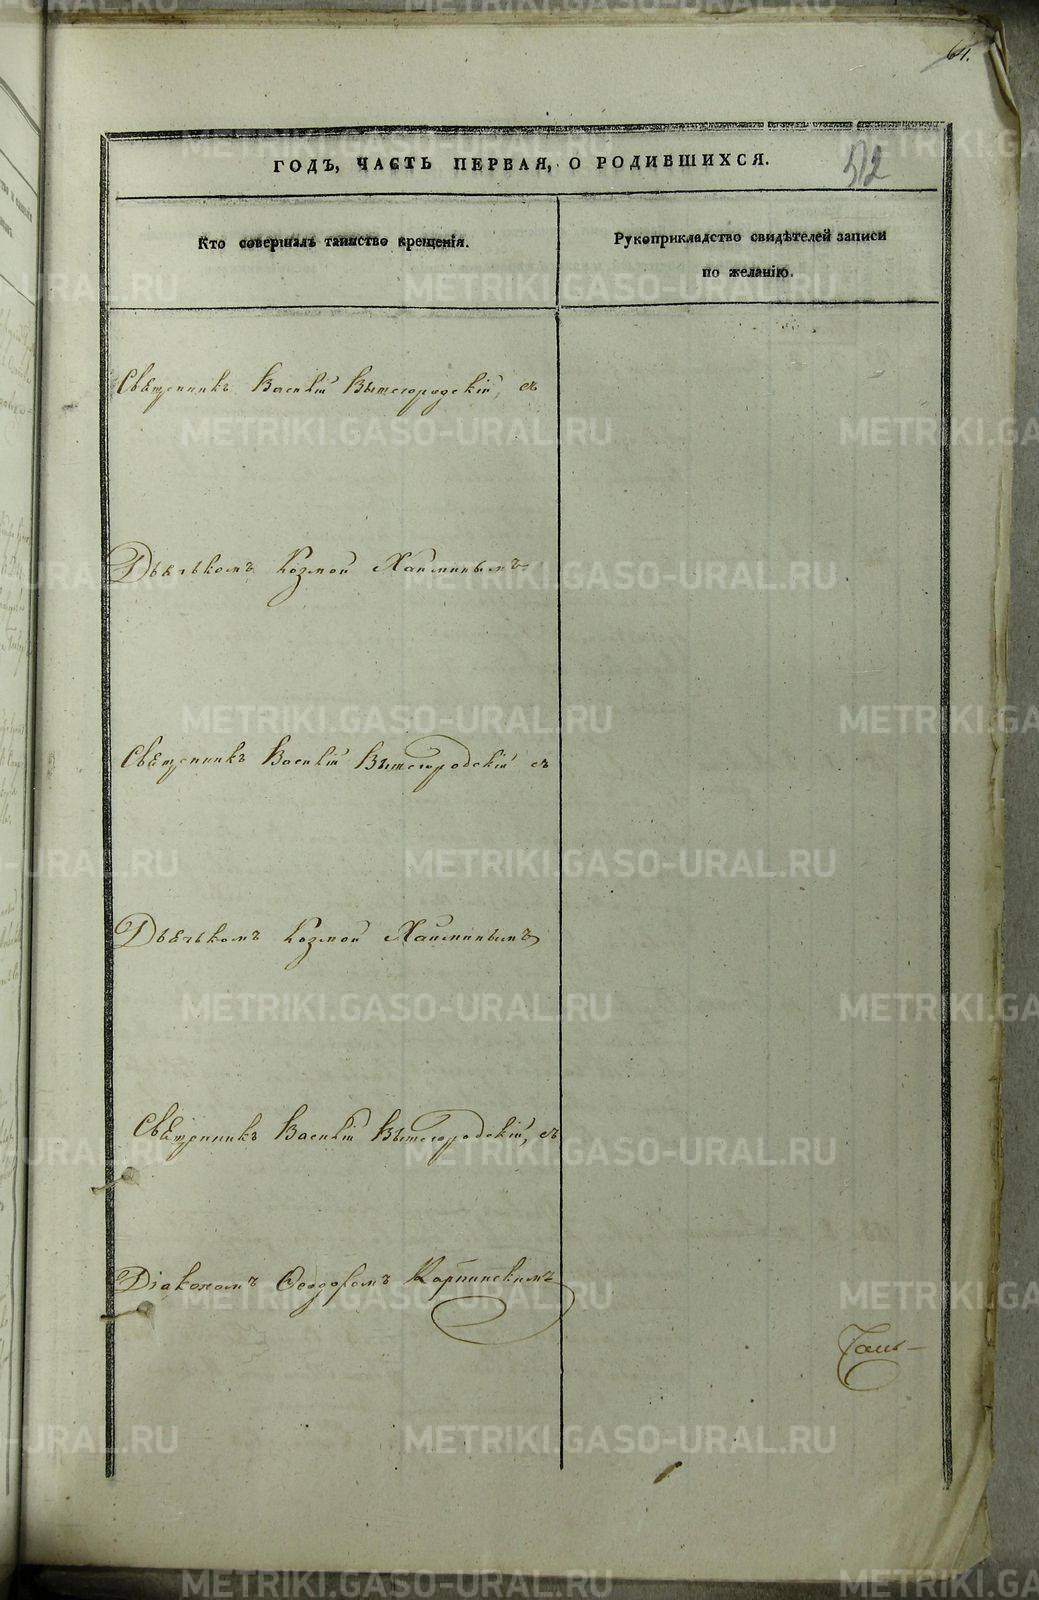 64.
ГОДЪ, ЧАСТЬ ПЕРВАЯ, О РОДИВШИХСЯ.
512
Кто совершалъ таинство крещенія.
Рукоприкладство свидѣтелей записи
по желанію.
Священникъ Василій Вышегородскій, съ
Дьячькомъ Козмой Хайминымъ
Священникъ Василій Вышегородскій съ
Дьячькомъ Козмой Хайминымъ
Священникъ Василій Вышегородскій, съ
Діакономъ Ѳеодоромъ Карпинскимъ
METRIKI.GASO-URAL.RU